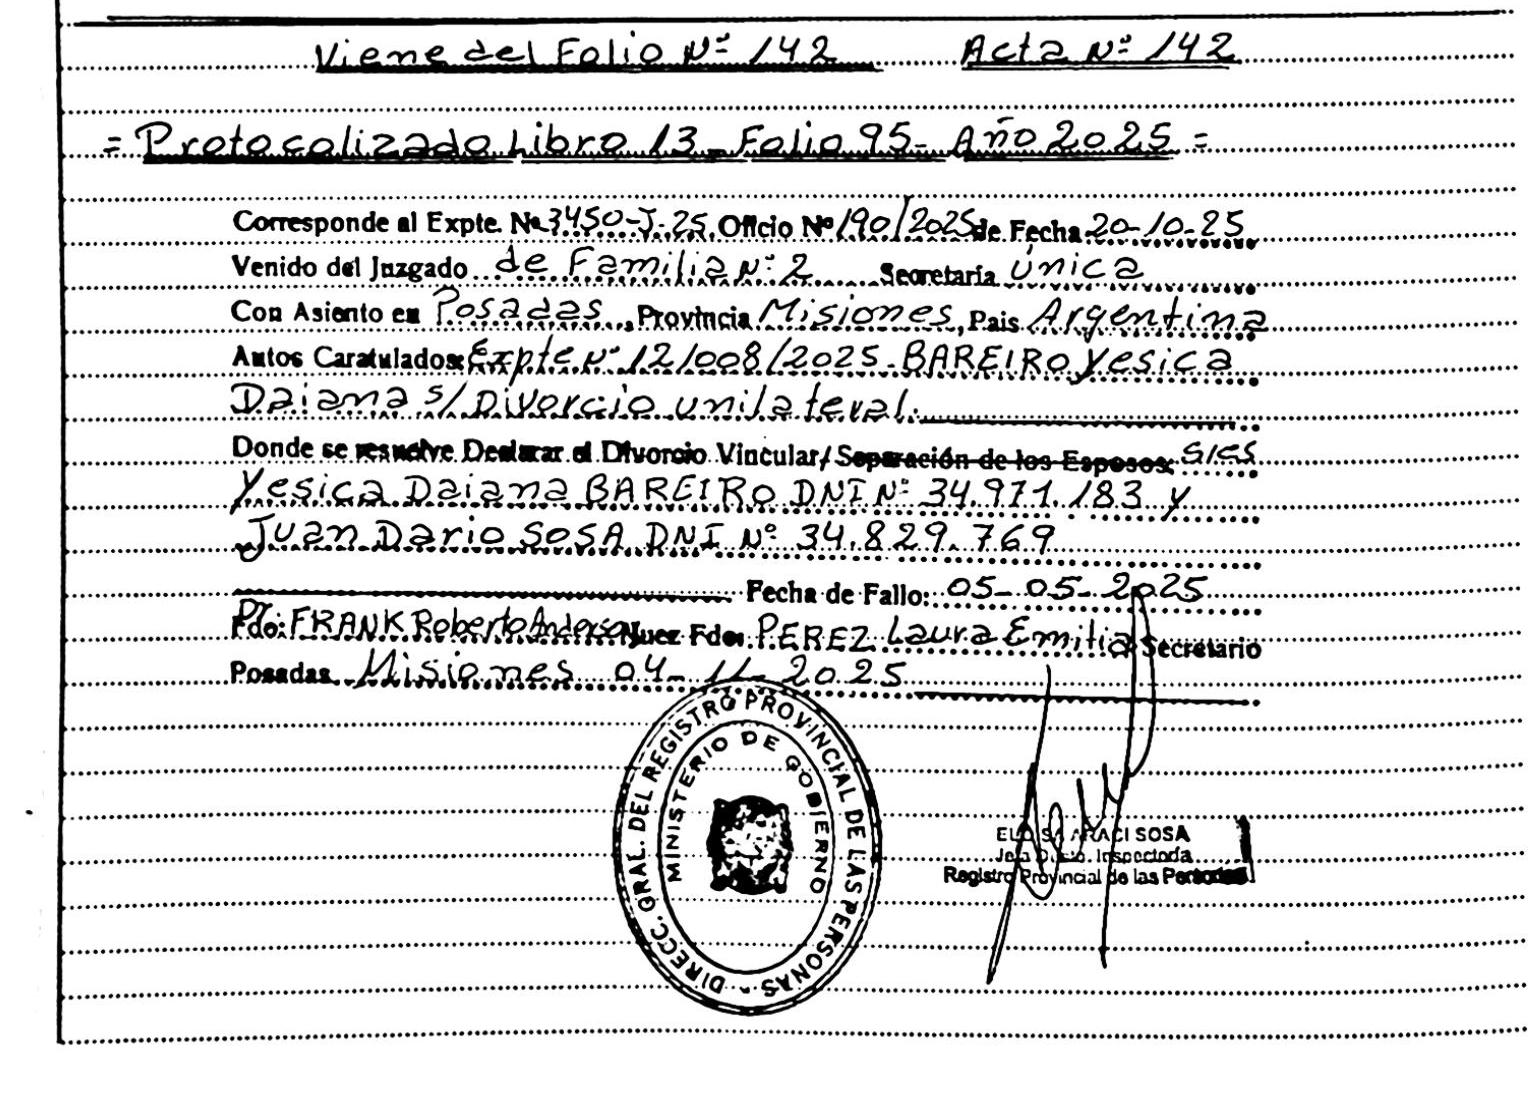 Viene del Folio Nº 142 Acta Nº 142
= Protocolizado Libro 13 - Folio 95 - Año 2025 =
Corresponde al Expte. Nº 3450-J-25. Oficio Nº 190/2025 de Fecha 20-10-25
Venido del Juzgado de Familia Nº 2 Secretaria Única
Con Asiento en Posadas, Provincia Misiones, Pais Argentina
Autos Caratulados: Expte Nº 121008/2025 - BAREIRO Yesica
Daiana s/ Divorcio unilateral.
Donde se resuelve Declarar el Divorcio Vincular/ Separación de los Esposos:
Yesica Daiana BAREIRO DNI Nº 34.971.183 y
Juan Dario SOSA DNI Nº 34.829.769
Fecha de Fallo: 05-05-2025
Fdo: FRANK Roberto Anderson Juez Fdo: PEREZ Laura Emilia Secretario
Posadas, Misiones 04-11-2025
DIRECC. GRAL. DEL REGISTRO PROVINCIAL DE LAS PERSONAS
MINISTERIO DE GOBIERNO
ELOISA ARACI SOSA
Jefa Dpto. Inspectoría
Registro Provincial de las Personas